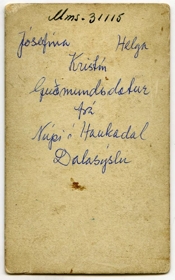 Mms. 31115
Jósefína Helga
Kristín
Guðmundsdóttur
frá
Núpi í Haukadal
Dalasýslu